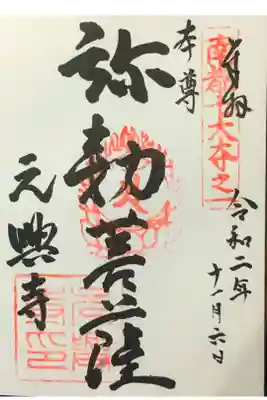 奉拝
令和二年
十一月六日
南都七大寺之一
本尊
弥勒菩薩
元興寺